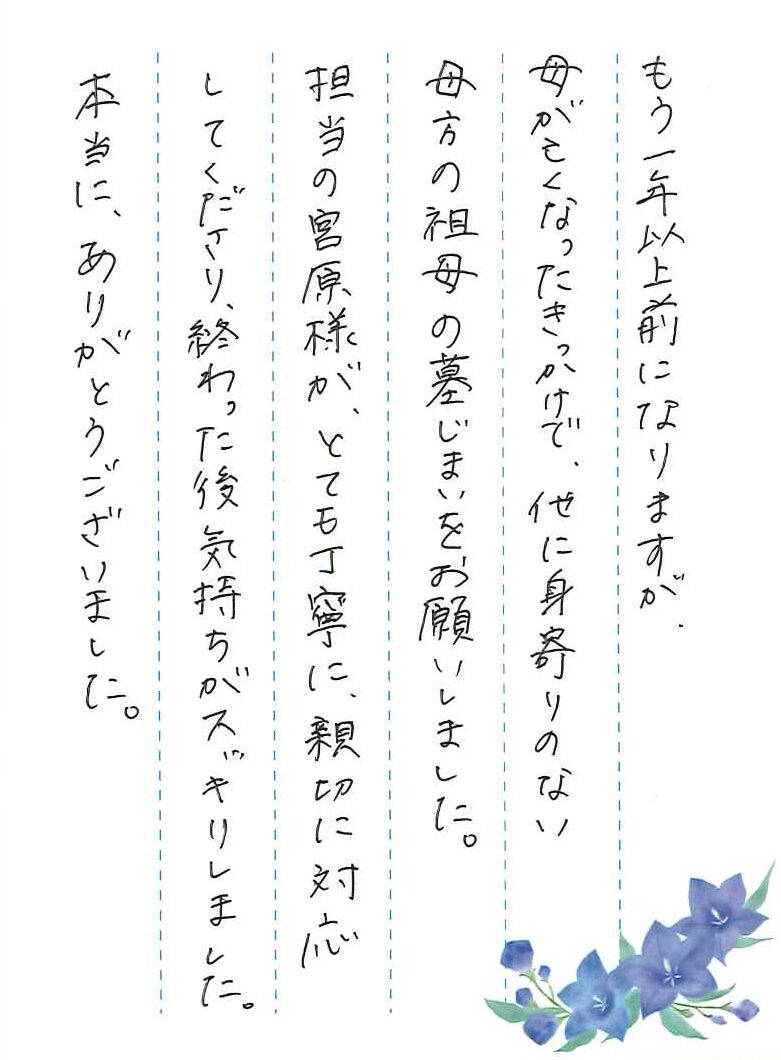 もう一年以上前になりますが、
母が亡くなったきっかけで、他に身寄りのない
母方の祖母の墓じまいをお願いしました。
担当の宮原様が、とても丁寧に、親切に対応
してくださり、終わった後気持ちがスッキリしました。
本当に、ありがとうございました。